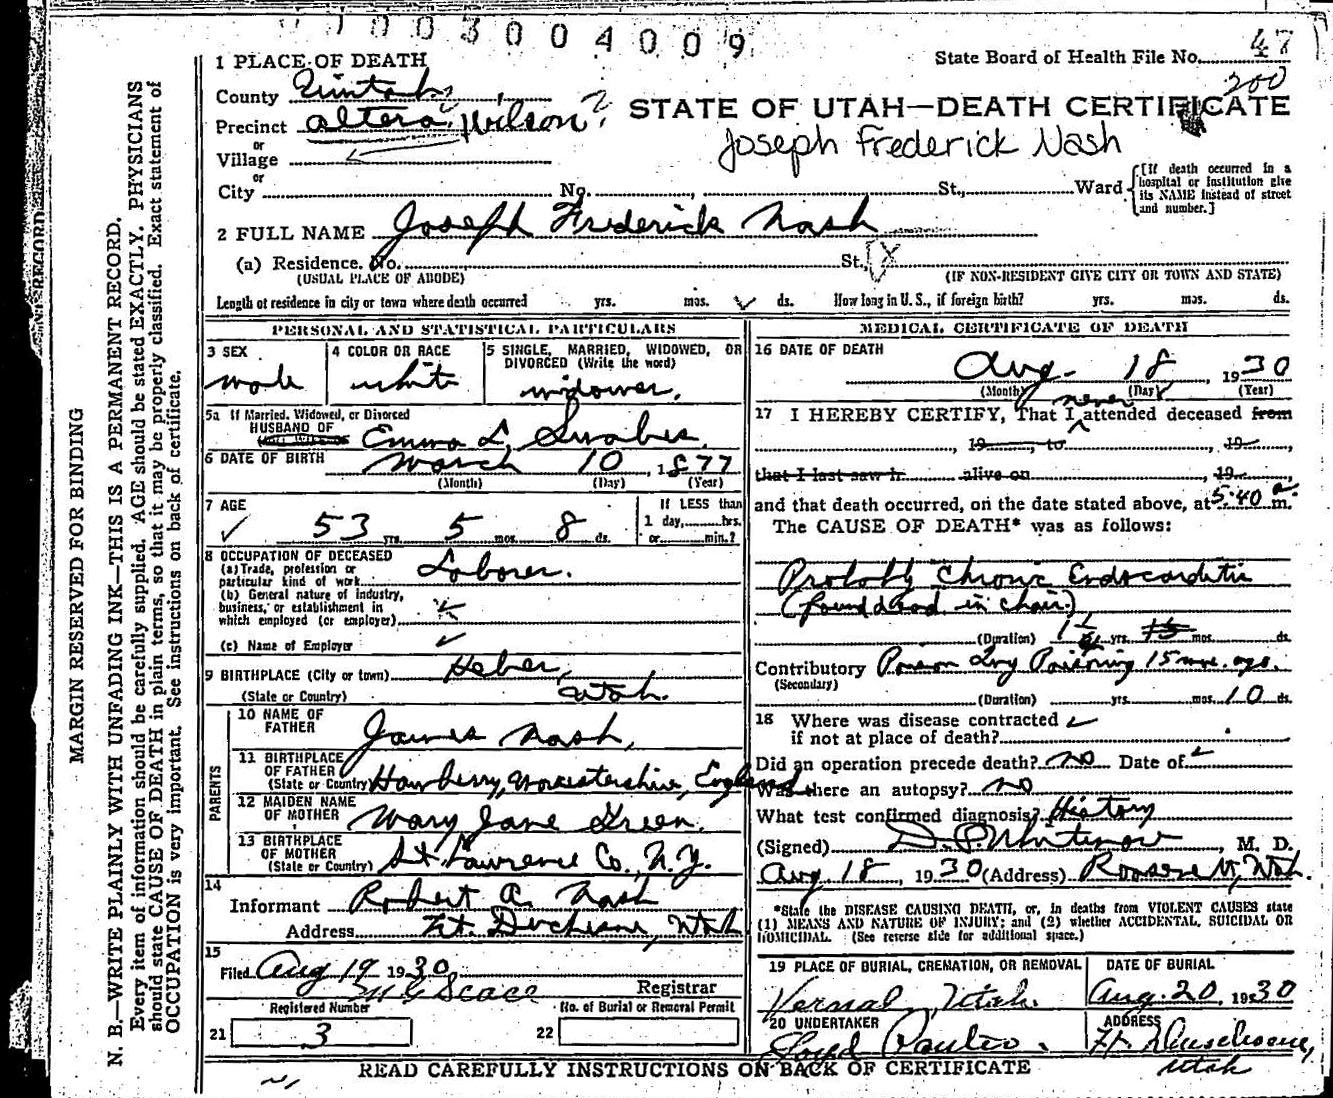 003004009
State Board of Health File No. 47
200
1 PLACE OF DEATH
County Uintah
STATE OF UTAH—DEATH CERTIFICATE
Precinct altera, Wilson?
Joseph Frederick Nash
or
Village
or
City No. , St., Ward
[If death occurred in a hospital or institution give its NAME instead of street and number.]
2 FULL NAME Joseph Frederick Nash
(a) Residence. No. St.
(USUAL PLACE OF ABODE) (IF NON-RESIDENT GIVE CITY OR TOWN AND STATE)
Length of residence in city or town where death occurred yrs. mos. ds. How long in U. S., if foreign birth? yrs. mos. ds.
PERSONAL AND STATISTICAL PARTICULARS
3 SEX
male
4 COLOR OR RACE
white
5 SINGLE, MARRIED, WIDOWED, OR DIVORCED (Write the word)
widower.
5a If Married, Widowed, or Divorced
HUSBAND OF Emma L.
6 DATE OF BIRTH March 10, 1877
(Month) (Day) (Year)
7 AGE
53 yrs. 5 mos. 8 ds.
If LESS than
1 day, hrs.
or min.?
8 OCCUPATION OF DECEASED
(a) Trade, profession or
particular kind of work Laborer.
(b) General nature of industry,
business, or establishment in
which employed (or employer)
(c) Name of Employer
9 BIRTHPLACE (City or town) Heber,
(State or Country) Utah.
PARENTS
10 NAME OF FATHER James Nash,
11 BIRTHPLACE OF FATHER
(State or Country) Worcestershire, England
12 MAIDEN NAME OF MOTHER Mary Jane Green.
13 BIRTHPLACE OF MOTHER
(State or Country) St. Lawrence Co., N.Y.
14
Informant Robert A. Nash
Address Ft. Duchesne, Utah
15
Filed Aug 19 1930
Registrar
Registered Number
21 3
No. of Burial or Removal Permit
22
MEDICAL CERTIFICATE OF DEATH
16 DATE OF DEATH
Aug. 18, 1930
(Month) (Day) (Year)
never
17 I HEREBY CERTIFY, That I attended deceased from
, 19 , to , 19
that I last saw h alive on , 19
and that death occurred, on the date stated above, at 5:40 a. m.
The CAUSE OF DEATH* was as follows:
Probably Chronic Endocarditis
(found dead in chair.)
(Duration) yrs. mos. ds.
Contributory Poison Ivy Poisoning 15 mos. ago.
(Secondary)
(Duration) yrs. mos. 10 ds.
18 Where was disease contracted
if not at place of death?
Did an operation precede death? no Date of
Was there an autopsy? no
What test confirmed diagnosis? History
(Signed) , M. D.
Aug 18, 1930 (Address) Roosevelt, Utah.
*State the DISEASE CAUSING DEATH, or, in deaths from VIOLENT CAUSES state
(1) MEANS AND NATURE OF INJURY; and (2) whether ACCIDENTAL, SUICIDAL OR
HOMICIDAL. (See reverse side for additional space.)
19 PLACE OF BURIAL, CREMATION, OR REMOVAL
Vernal, Utah.
DATE OF BURIAL
Aug. 20, 1930
20 UNDERTAKER
Lloyd
ADDRESS
Ft. Duschesne,
Utah
READ CAREFULLY INSTRUCTIONS ON BACK OF CERTIFICATE
MARGIN RESERVED FOR BINDING
N. B.—WRITE PLAINLY WITH UNFADING INK—THIS IS A PERMANENT RECORD.
Every item of information should be carefully supplied. AGE should be stated EXACTLY. PHYSICIANS
should state CAUSE OF DEATH in plain terms, so that it may be properly classified. Exact statement of
OCCUPATION is very important. See instructions on back of certificate.